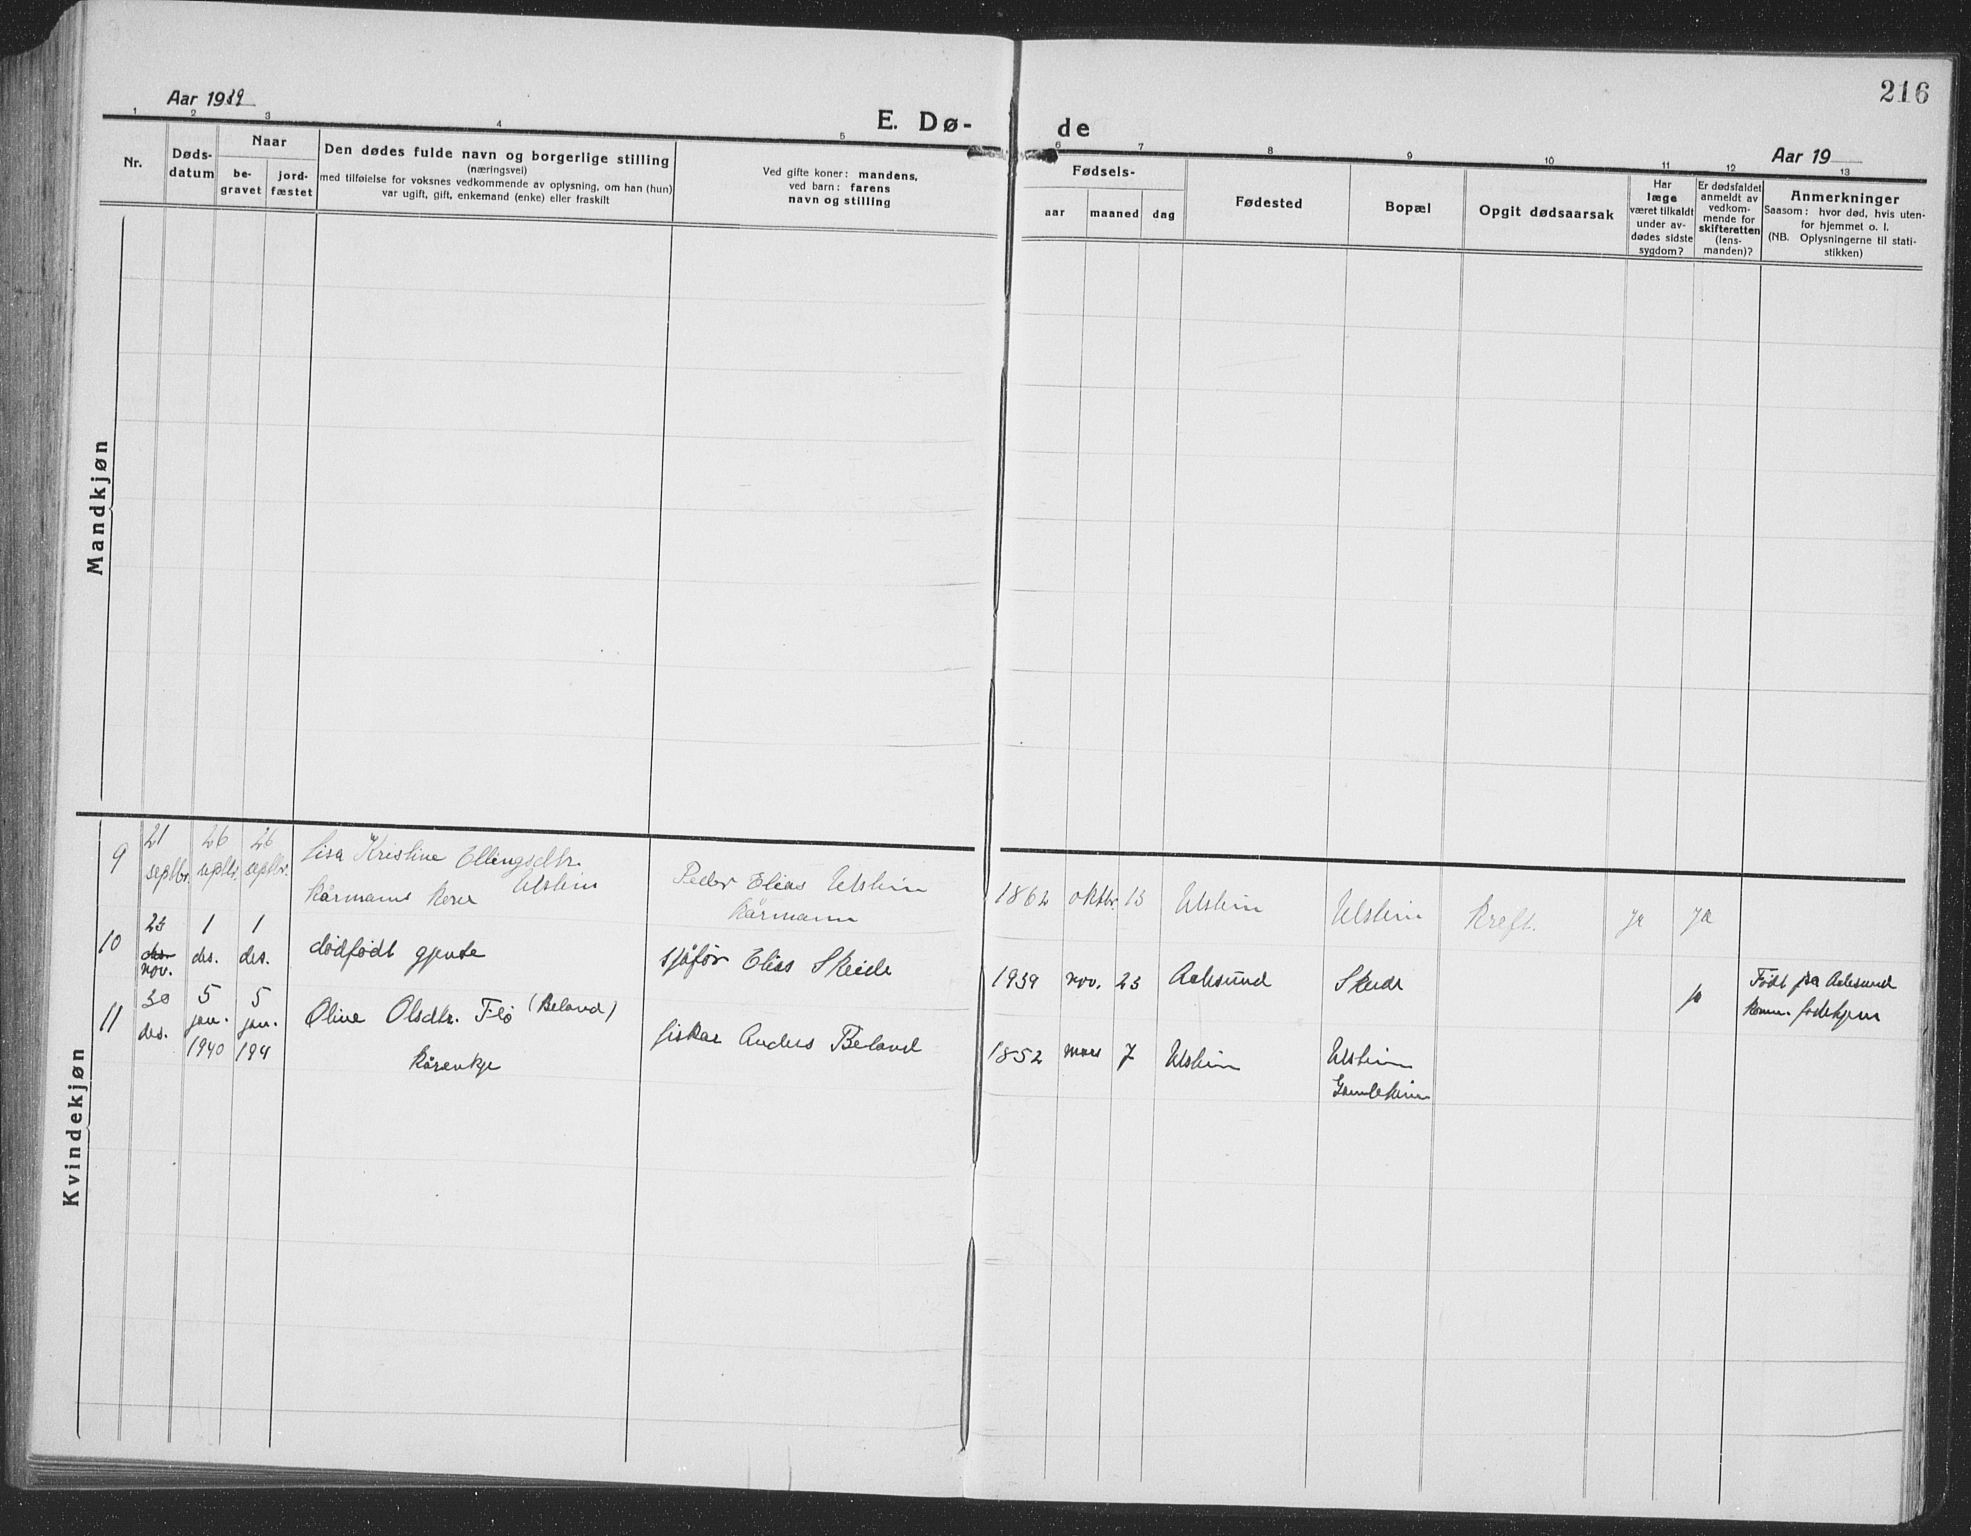 216
Aar 1939
E. Dø-
de
Aar 19
1 2 3 4 5 6 7 8 9 10 11 12 13
Nr.
Døds-
datum
Naar
be-
gravet
jord-
fæstet
Den dødes fulde navn og borgerlige stilling
(næringsvei)
med tilføielse for voksnes vedkommende av oplysning, om han (hun)
var ugift, gift, enkemand (enke) eller fraskilt
Ved gifte koner: mandens,
ved barn: farens
navn og stilling
Fødsels-
aar
maaned
dag
Fødested
Bopæl
Opgit dødsaarsak
Har
læge
været tilkaldt
under av-
dødes sidste
sygdom?
Er dødsfaldet
anmeldt av
vedkom-
mende for
skifteretten
(lens-
manden)?
Anmerkninger
Saasom: hvor død, hvis uten-
for hjemmet o. l.
(NB. Oplysningerne til stati-
stikken)
Mandkjøn
Kvindekjøn
9
21
septbr.
26
septbr.
26
septbr.
Lisa Kristine Ellingsdtr.
Ulstein
kårmanns kone
Peder Elias Ulstein
kårmann
1862 oktbr. 13 Ulstein Ulstein Kreft. ja ja
10
23
des.
nov.
1
des.
1
des.
dødfødt gjente
sjåfør Elias Skeide
1939 nov. 23 Aalesund Skeide ja
Født på Aalesund
komm. fødehjem
11
30
des.
5
jan.
1940
5
jan.
194
Oline Olsdtr. Flø (Beland)
kårenkje
fiskar Anders Beland
1852 mars 7 Ulstein Ulstein
Gamleheim